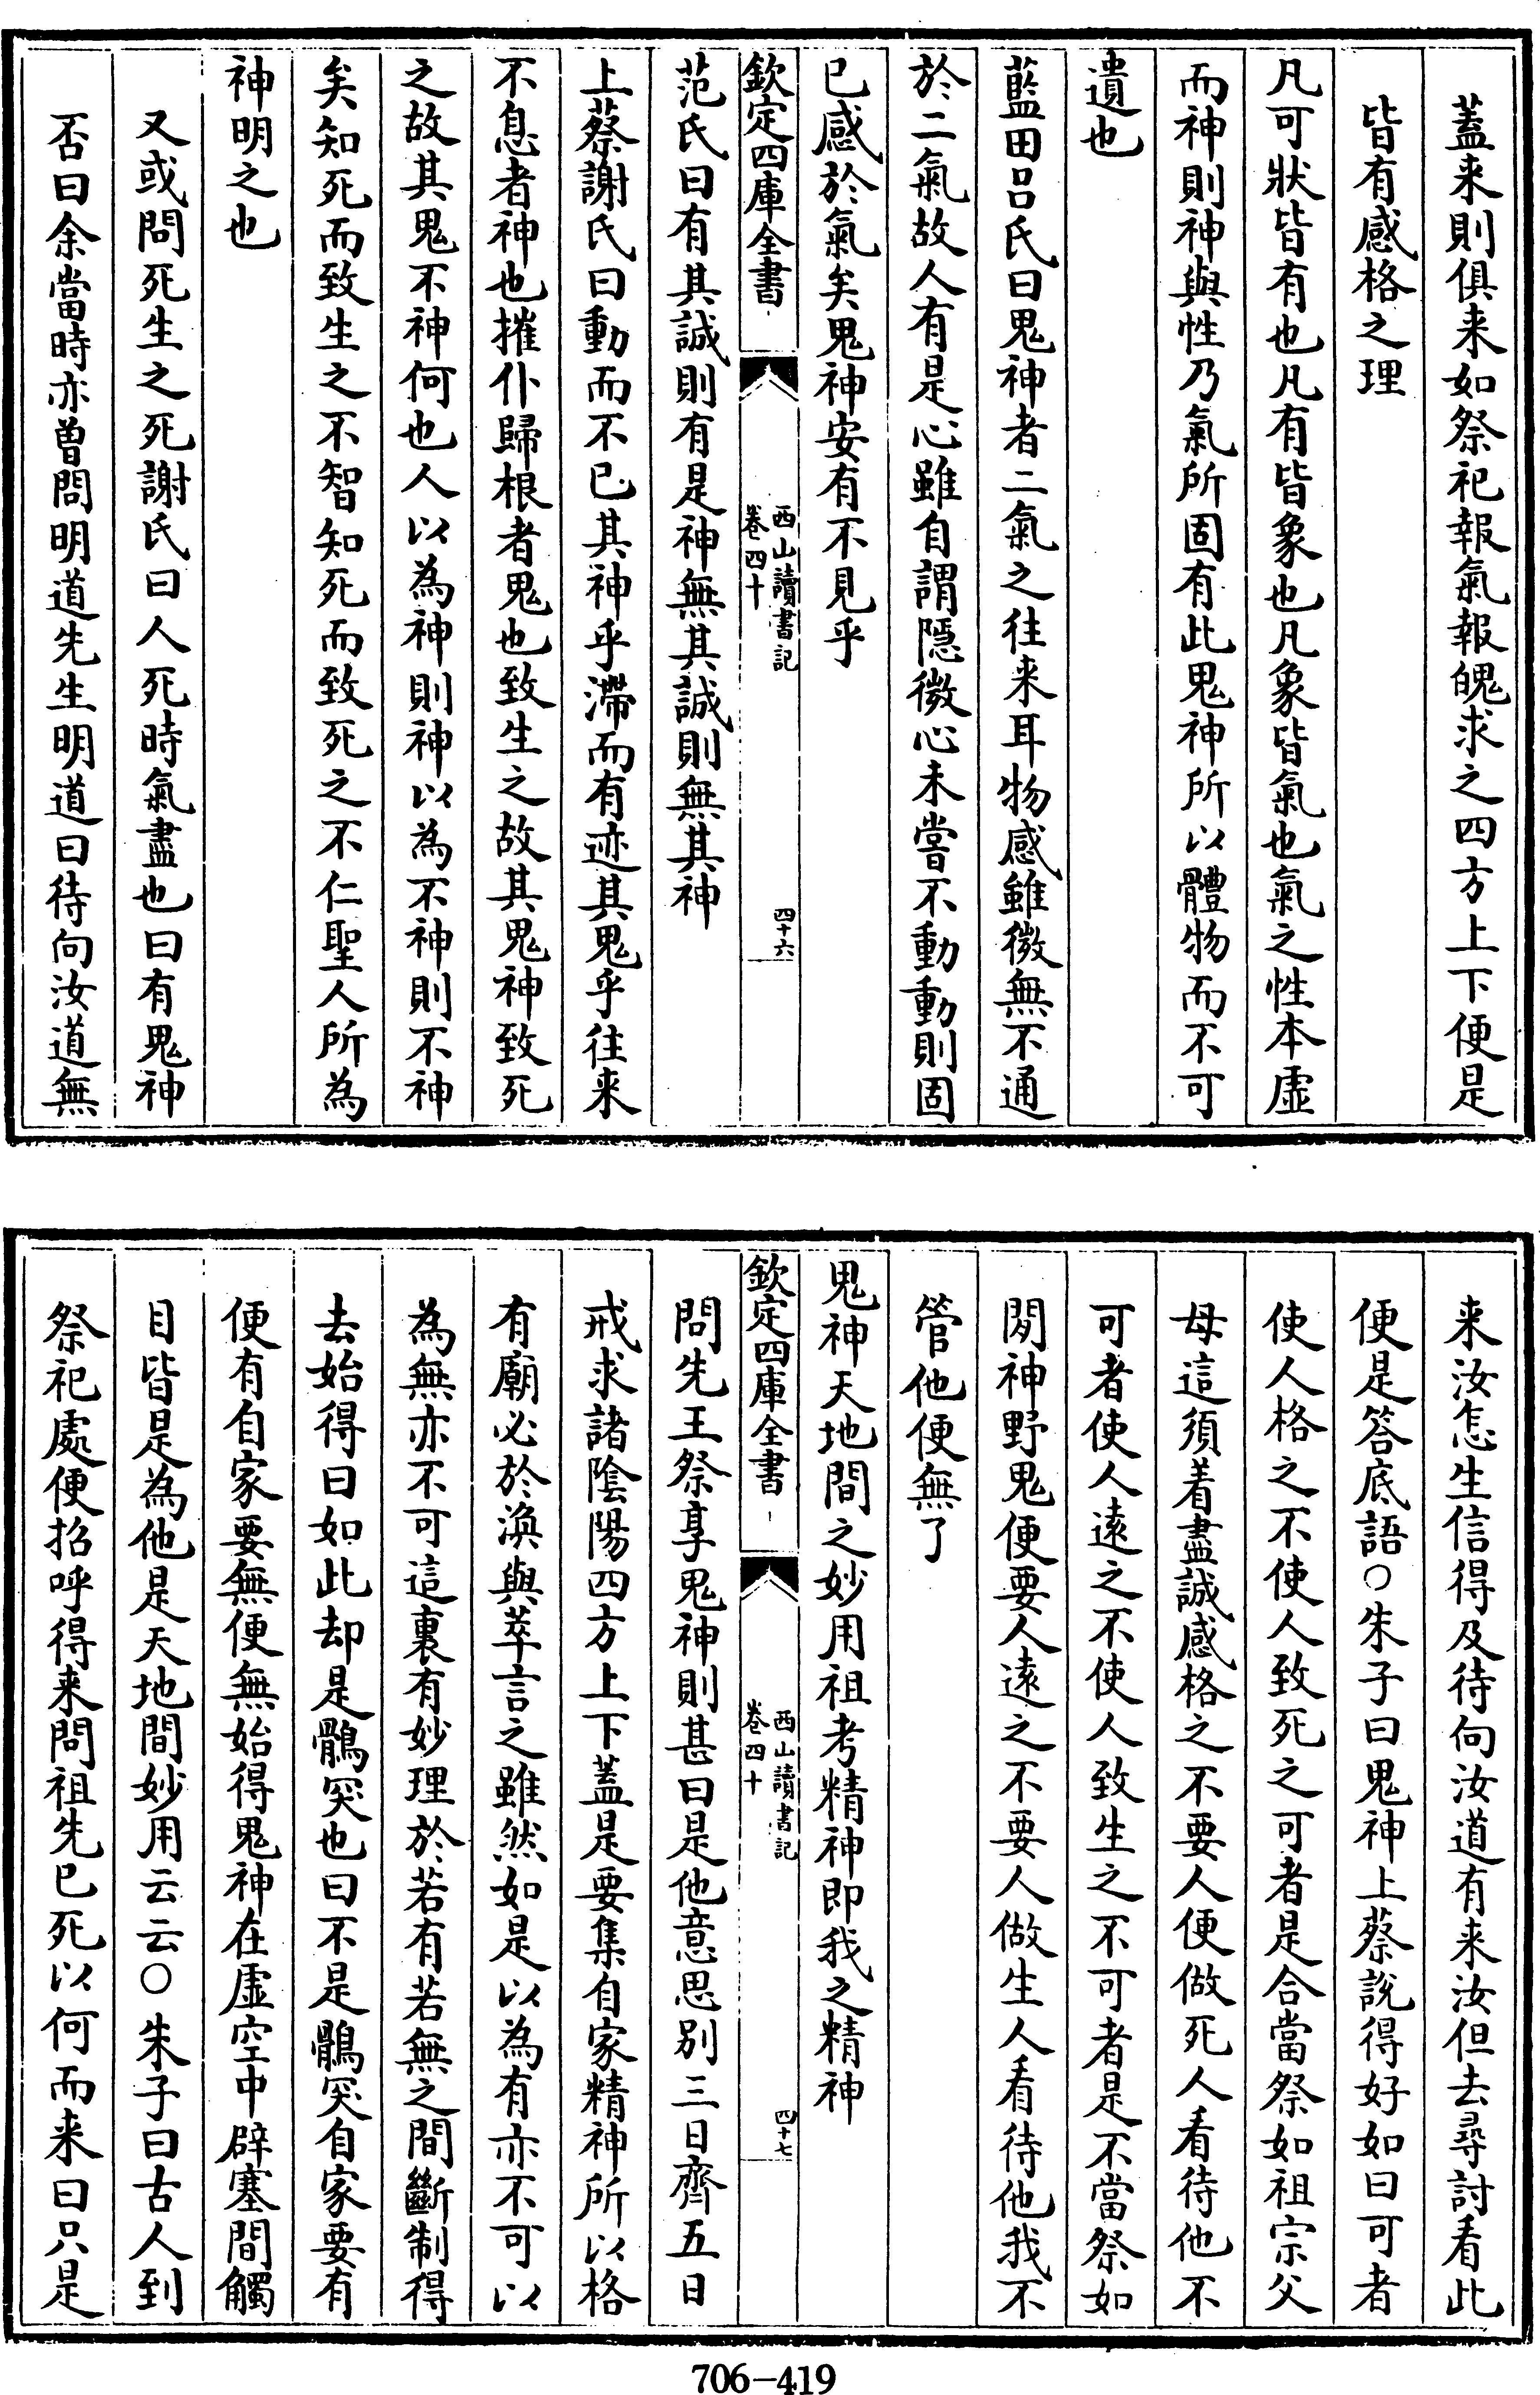 蓋来則俱来如祭祀報氣報魄求之四方上下便是
皆有感格之理
凡可狀皆有也凡有皆象也凡象皆氣也氣之性本虛
而神則神與性乃氣所固有此鬼神所以體物而不可
遺也
藍田呂氏曰鬼神者二氣之往来耳物感雖微無不通
於二氣故人有是心雖自謂隱微心未嘗不動動則固
已感於氣矣鬼神安有不見乎
欽定四庫全書
西山讀書記
卷四十
四十六
范氏曰有其誠則有是神無其誠則無其神
上蔡謝氏曰動而不已其神乎滯而有迹其鬼乎往来
不息者神也摧仆歸根者鬼也致生之故其鬼神致死
之故其鬼不神何也人以為神則神以為不神則不神
矣知死而致生之不智知死而致死之不仁聖人所為
神明之也
又或問死生之死謝氏曰人死時氣盡也曰有鬼神
否曰余當時亦曽問明道先生明道曰待向汝道無
来汝怎生信得及待向汝道有来汝但去尋討看此
便是答底語○朱子曰鬼神上蔡說得好如曰可者
使人格之不使人致死之可者是合當祭如祖宗父
母這須着盡誠感格之不要人便做死人看待他不
可者使人遠之不使人致生之不可者是不當祭如
閒神野鬼便要人遠之不要人做生人看待他我不
管他便無了
鬼神天地間之妙用祖考精神即我之精神
欽定四庫全書
西山讀書記
卷四十
四十七
問先王祭享鬼神則甚曰是他意思別三日齊五日
戒求諸陰陽四方上下蓋是要集自家精神所以格
有廟必於渙與萃言之雖然如是以為有亦不可以
為無亦不可這裏有妙理於若有若無之間斷制得
去始得曰如此却是鶻突也曰不是鶻突自家要有
便有自家要無便無始得鬼神在虛空中辟塞間觸
目皆是為他是天地間妙用云云○朱子曰古人到
祭祀處便招呼得来問祖先已死以何而来曰只是
706-419